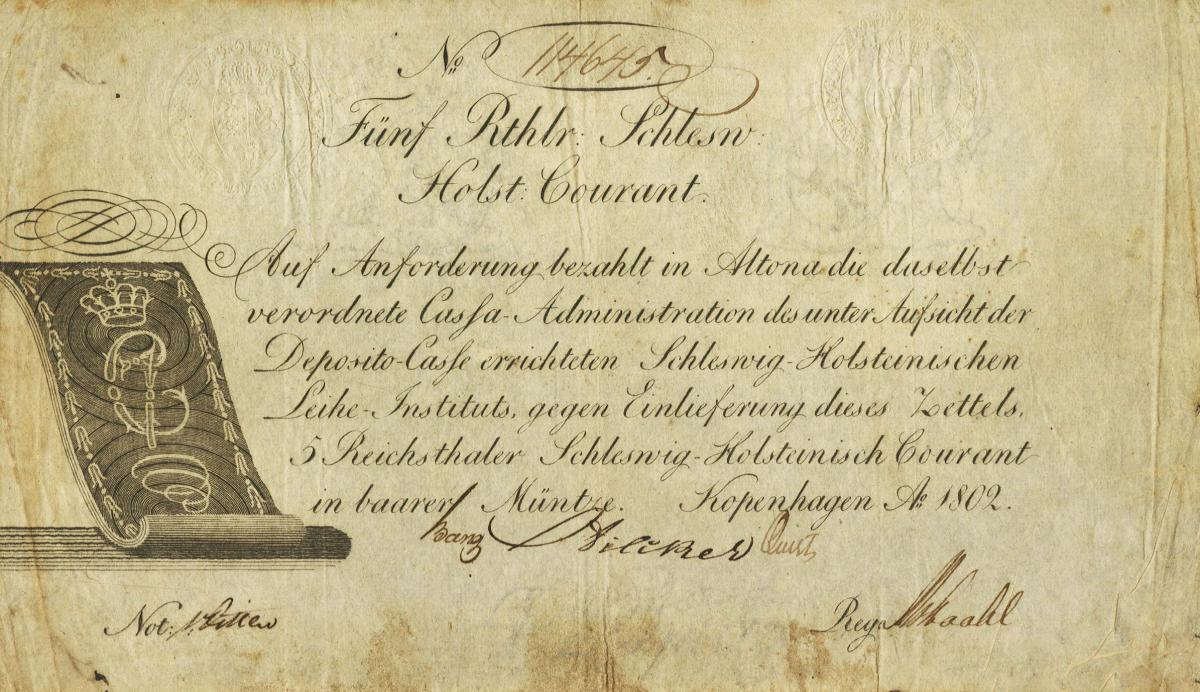 No 114645.
Fünf Rthlr: Schlesw:
Holst: Courant.
Auf Anforderung bezahlt in Altona die daselbst
verordnete Cassa-Administration des unter Aufsicht der
Deposito-Casse errichteten Schleswig-Holsteinischen
Leihe-Instituts, gegen Einlieferung dieses Zettels,
5 Reichsthaler Schleswig-Holsteinisch Courant
in baarer Müntze. Kopenhagen Ao 1802.
Bang
Not:
Reg: